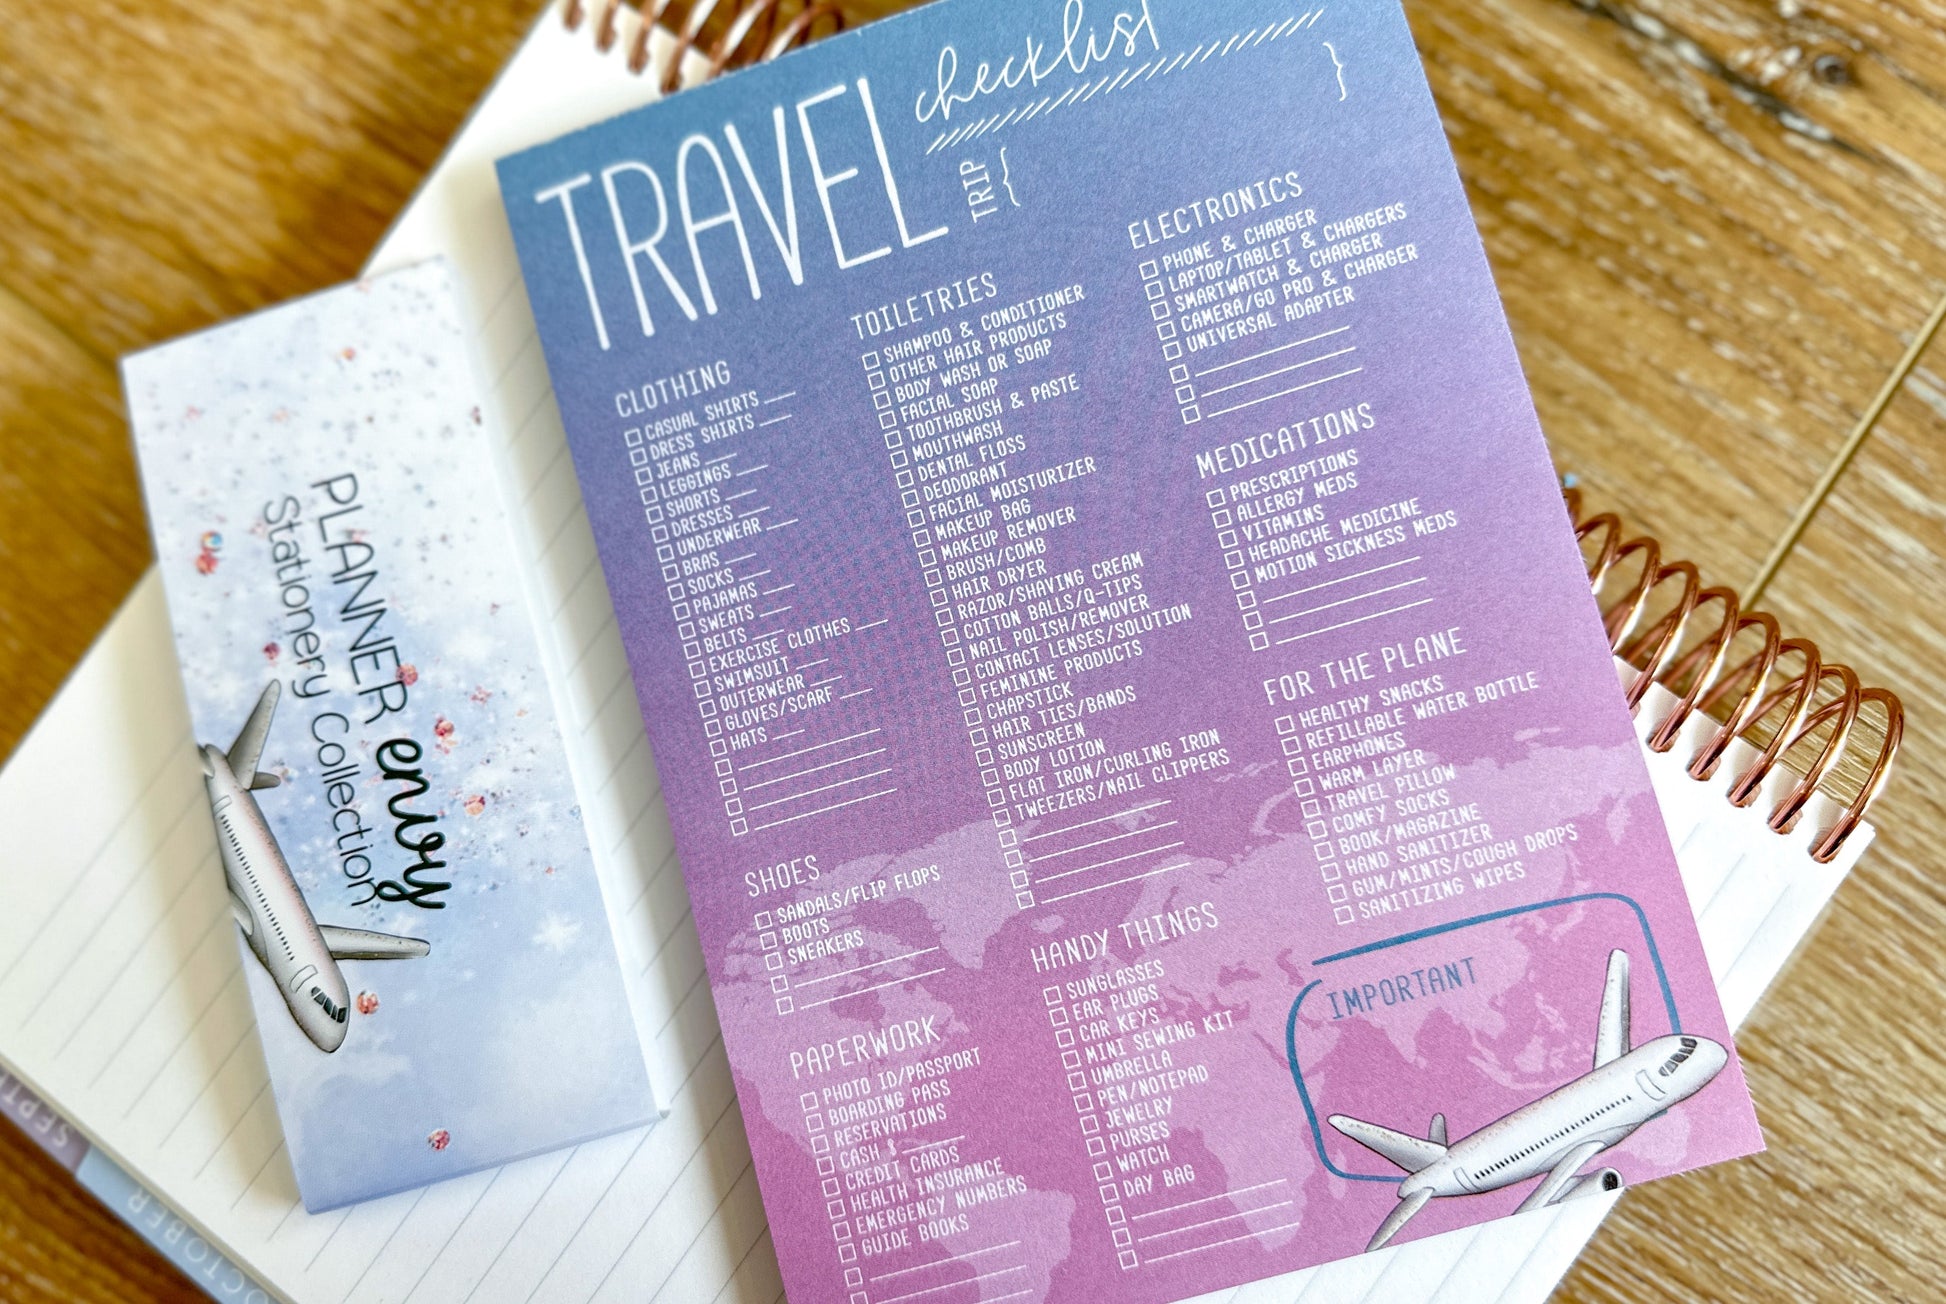 TRAVEL
checklist
TRIP { }
CLOTHING
CASUAL SHIRTS
DRESS SHIRTS
JEANS
LEGGINGS
SHORTS
DRESSES
UNDERWEAR
BRAS
SOCKS
PAJAMAS
SWEATS
BELTS
EXERCISE CLOTHES
SWIMSUIT
OUTERWEAR
GLOVES/SCARF
HATS
SHOES
SANDALS/FLIP FLOPS
BOOTS
SNEAKERS
PAPERWORK
PHOTO ID/PASSPORT
BOARDING PASS
RESERVATIONS
CASH $
CREDIT CARDS
HEALTH INSURANCE
EMERGENCY NUMBERS
GUIDE BOOKS
TOILETRIES
SHAMPOO & CONDITIONER
OTHER HAIR PRODUCTS
BODY WASH OR SOAP
FACIAL SOAP
TOOTHBRUSH & PASTE
MOUTHWASH
DENTAL FLOSS
DEODORANT
FACIAL MOISTURIZER
MAKEUP BAG
MAKEUP REMOVER
BRUSH/COMB
HAIR DRYER
RAZOR/SHAVING CREAM
COTTON BALLS/Q-TIPS
NAIL POLISH/REMOVER
CONTACT LENSES/SOLUTION
FEMININE PRODUCTS
CHAPSTICK
HAIR TIES/BANDS
SUNSCREEN
BODY LOTION
FLAT IRON/CURLING IRON
TWEEZERS/NAIL CLIPPERS
HANDY THINGS
SUNGLASSES
EAR PLUGS
CAR KEYS
MINI SEWING KIT
UMBRELLA
PEN/NOTEPAD
JEWELRY
PURSES
WATCH
DAY BAG
ELECTRONICS
PHONE & CHARGER
LAPTOP/TABLET & CHARGERS
SMARTWATCH & CHARGER
CAMERA/GO PRO & CHARGER
UNIVERSAL ADAPTER
MEDICATIONS
PRESCRIPTIONS
ALLERGY MEDS
VITAMINS
HEADACHE MEDICINE
MOTION SICKNESS MEDS
FOR THE PLANE
HEALTHY SNACKS
REFILLABLE WATER BOTTLE
EARPHONES
WARM LAYER
TRAVEL PILLOW
COMFY SOCKS
BOOK/MAGAZINE
HAND SANITIZER
GUM/MINTS/COUGH DROPS
SANITIZING WIPES
IMPORTANT
PLANNER envy
Stationery Collection
OCTOBER